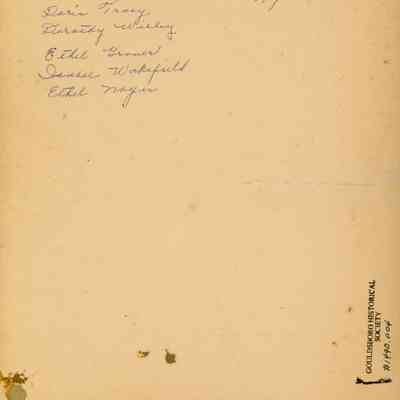 Doris Tracy
Dorothy Wisley
Ethel Grover
Wakefield
Ethel Noyes
GOULDSBORO HISTORICAL
SOCIETY
#1490.004